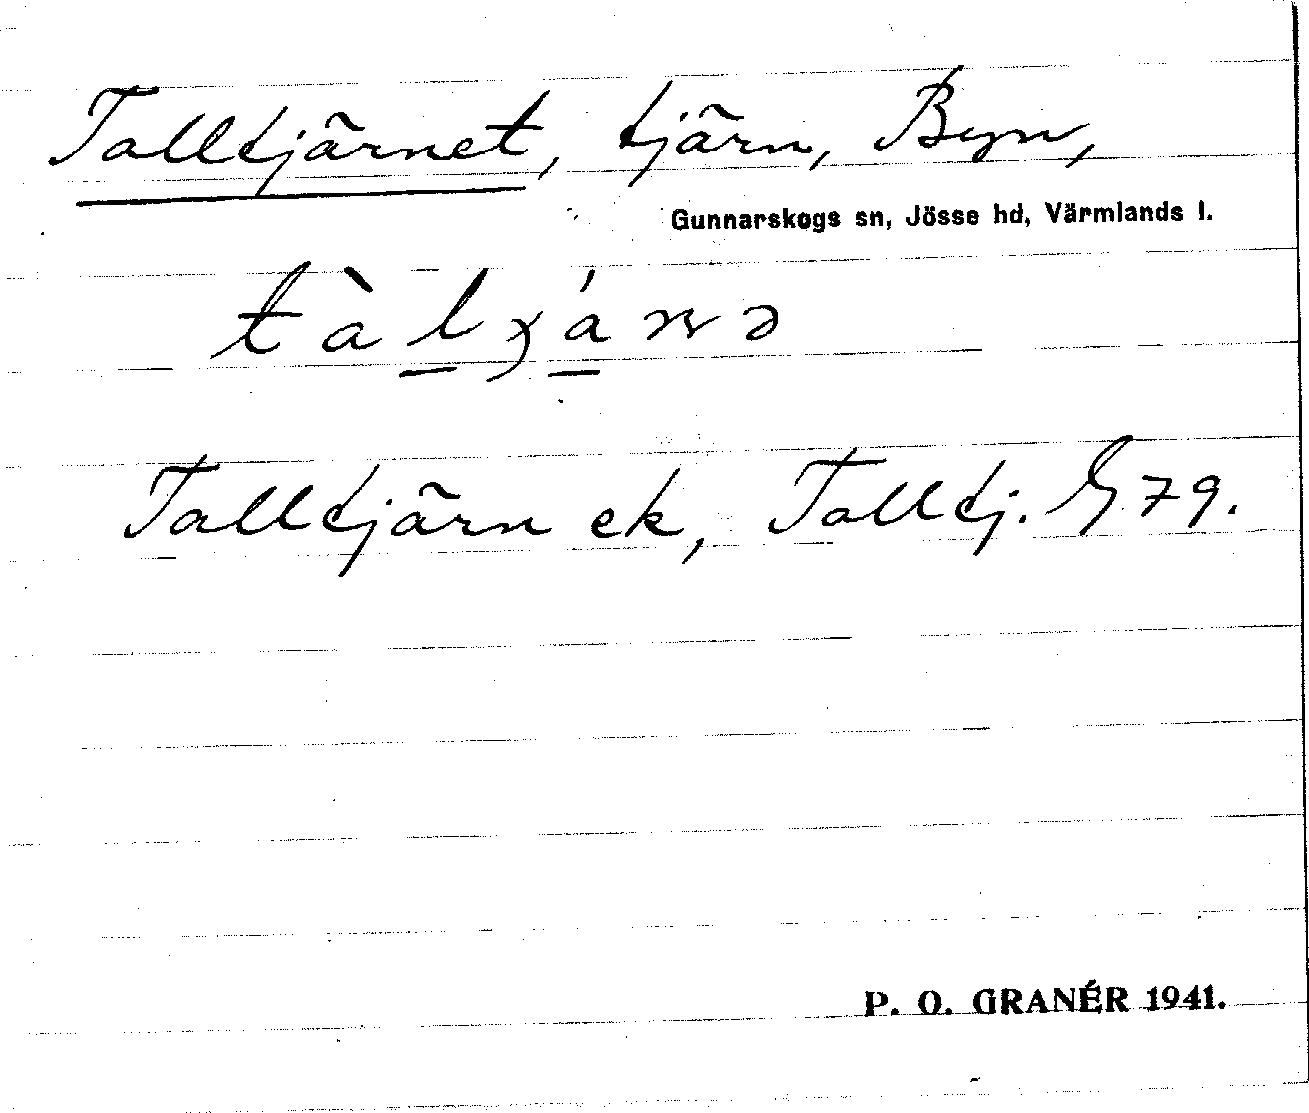 Talltjärnet, tjärn, Byn,
Gunnarskogs sn, Jösse hd, Värmlands l.
Talltjärn ek, Talltj. G 79.
P. O. GRANÉR 1941.